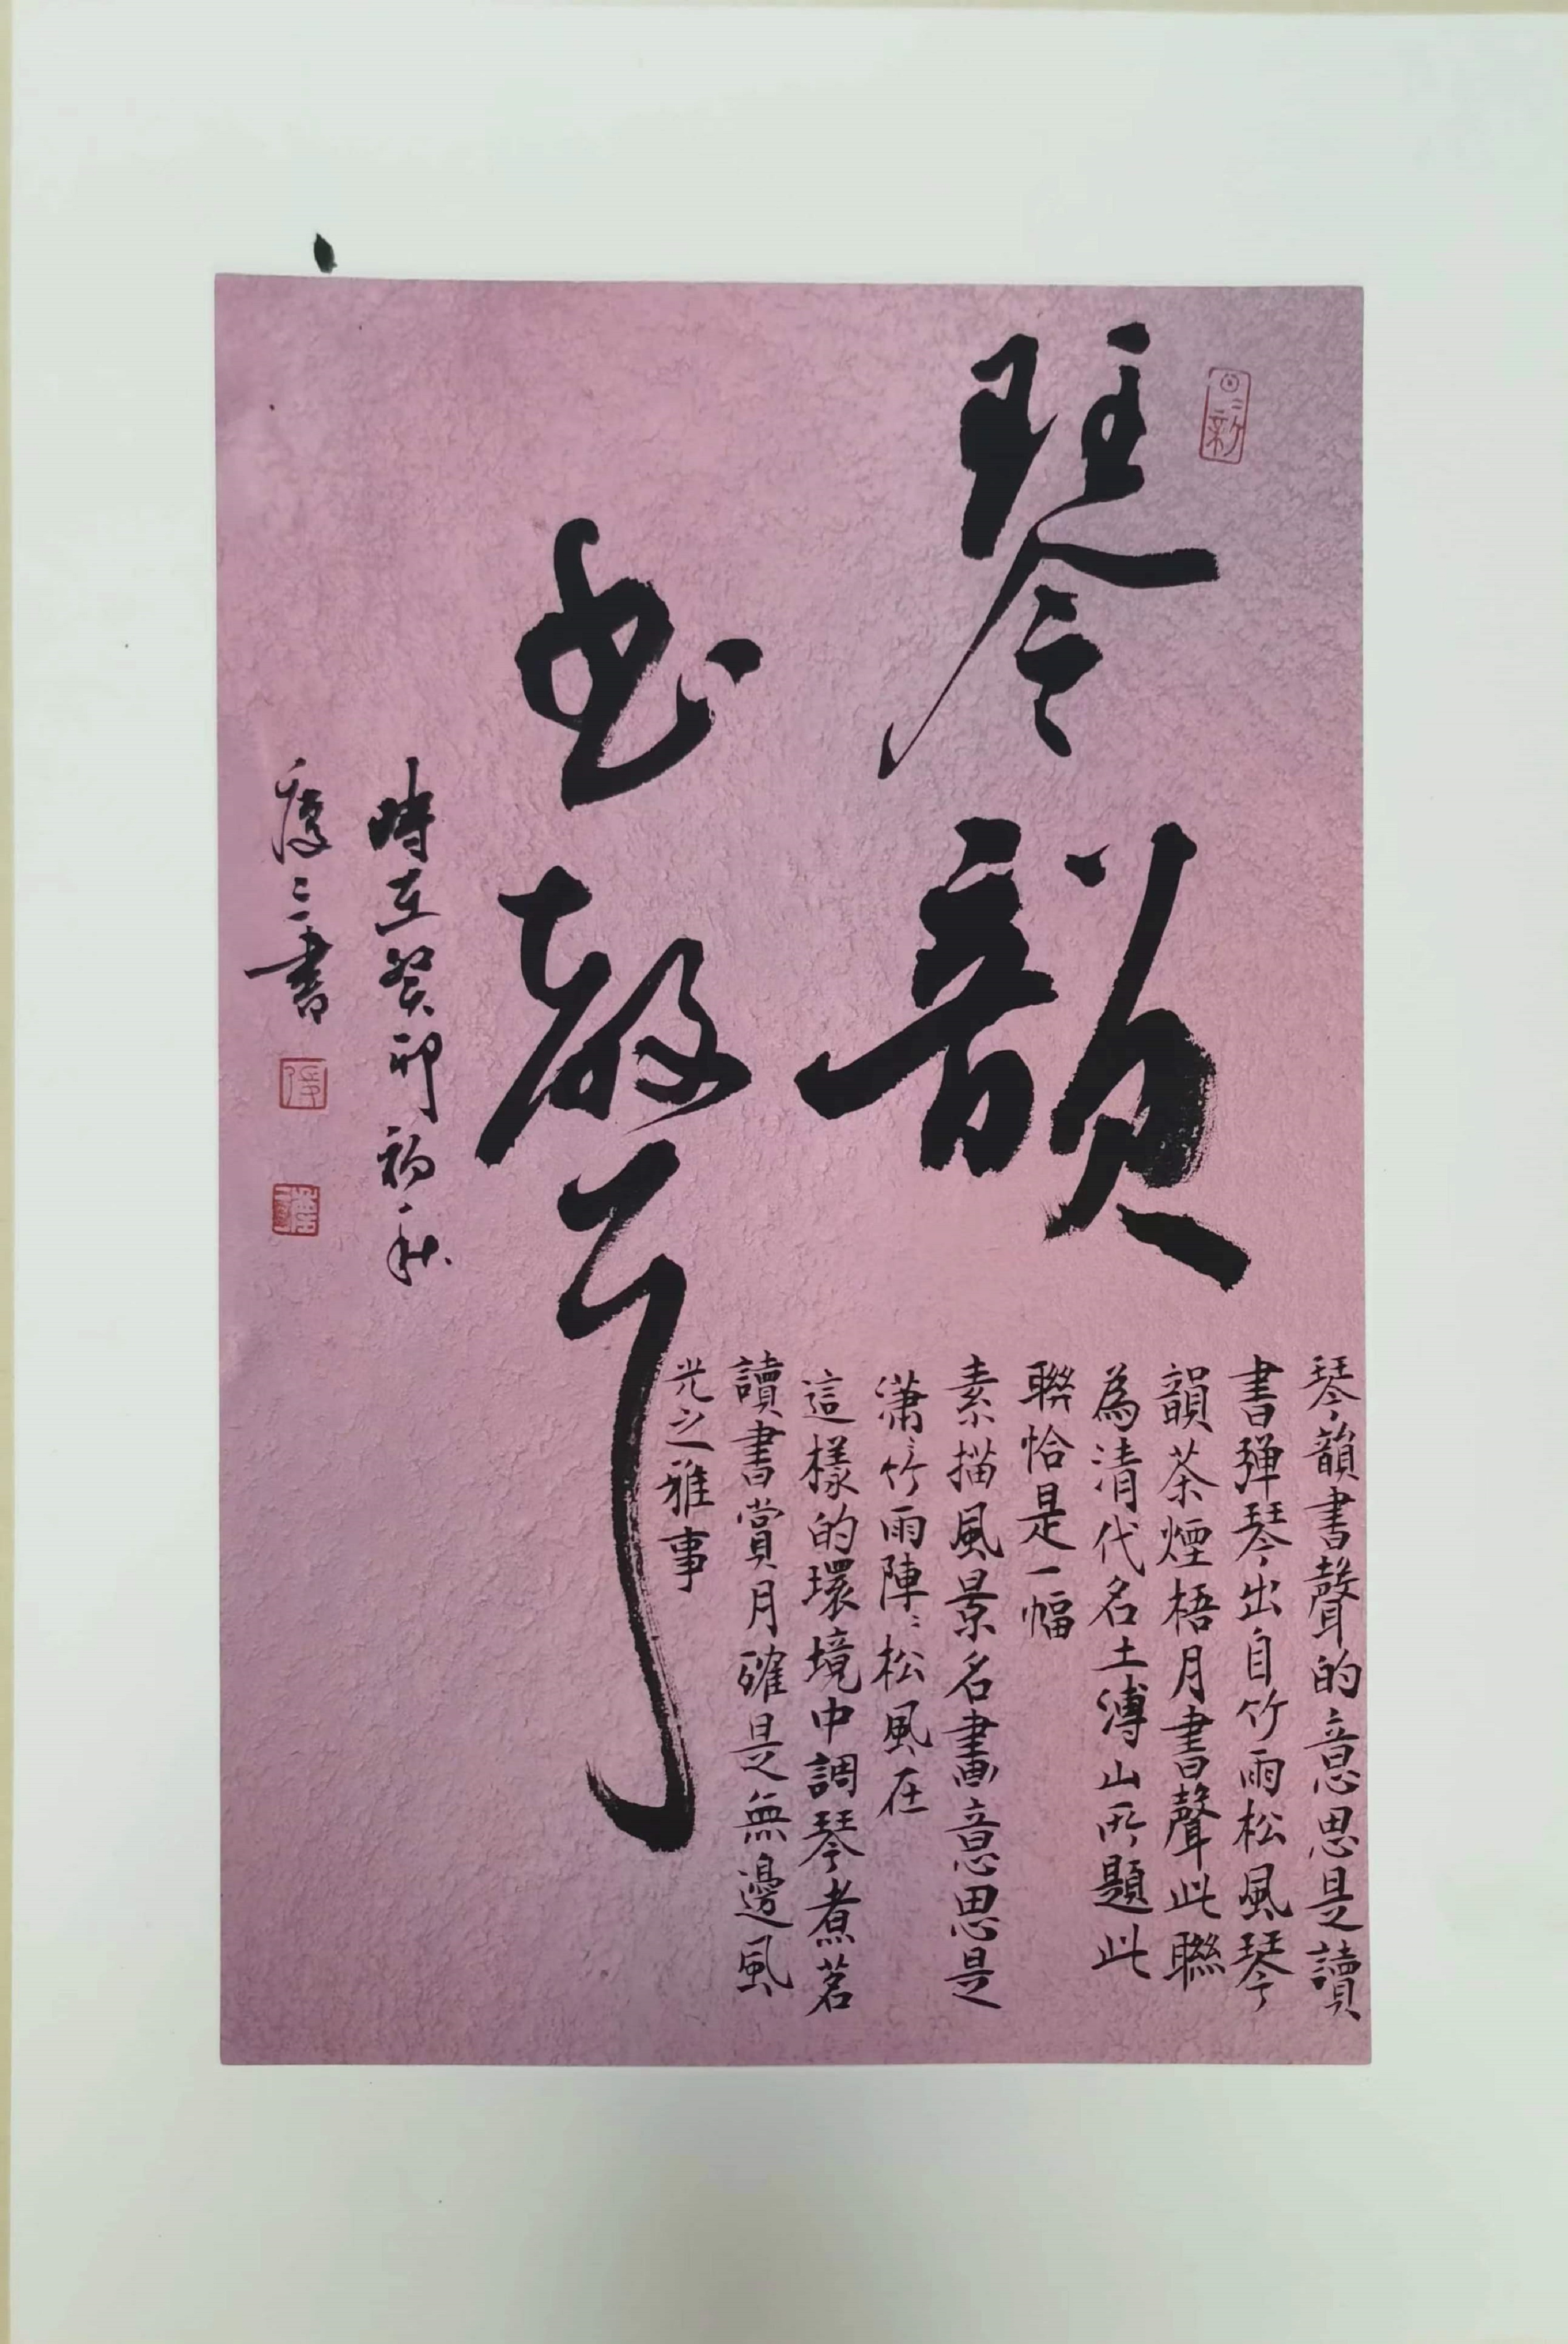 琴韻
书聲
琴韻書聲的意思是讀
書弹琴出自竹雨松風琴
韻茶煙梧月書聲此聯
為清代名士溥山所題此
聯恰是一幅
素描風景名畫意思是
瀟竹雨陣〻松風在
這樣的環境中調琴煮茗
讀書賞月確是無邊風
光之雅事
時在癸卯初秋
三書
日新